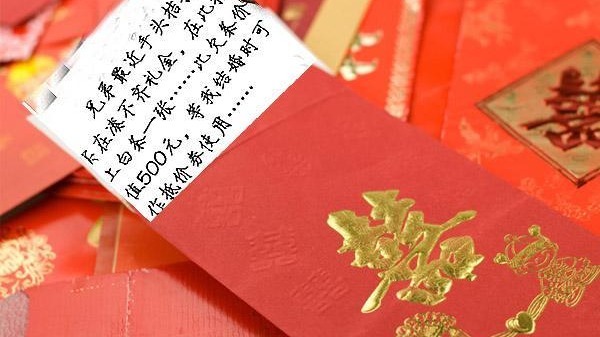 兄弟最近手头拮
实在凑不齐礼金，在此
上白条一张……此欠条价
值500元，等我结婚时可
作抵价券使用……
囍
囍